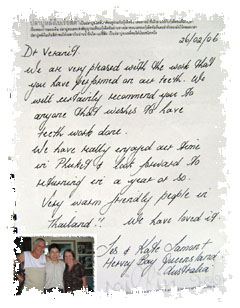 26/02/06
Dr Veranit.
We are very pleased with the work that
you have performed on our teeth. We
will certainly recommend you to
anyone that wishes to have
teeth work done.
We have really enjoyed our time
in Phuket & look forward to
returning in a year or so.
Very warm friendly people in
Thailand.. We have loved it
& Kaye
Hervey Bay Queensland
Australia